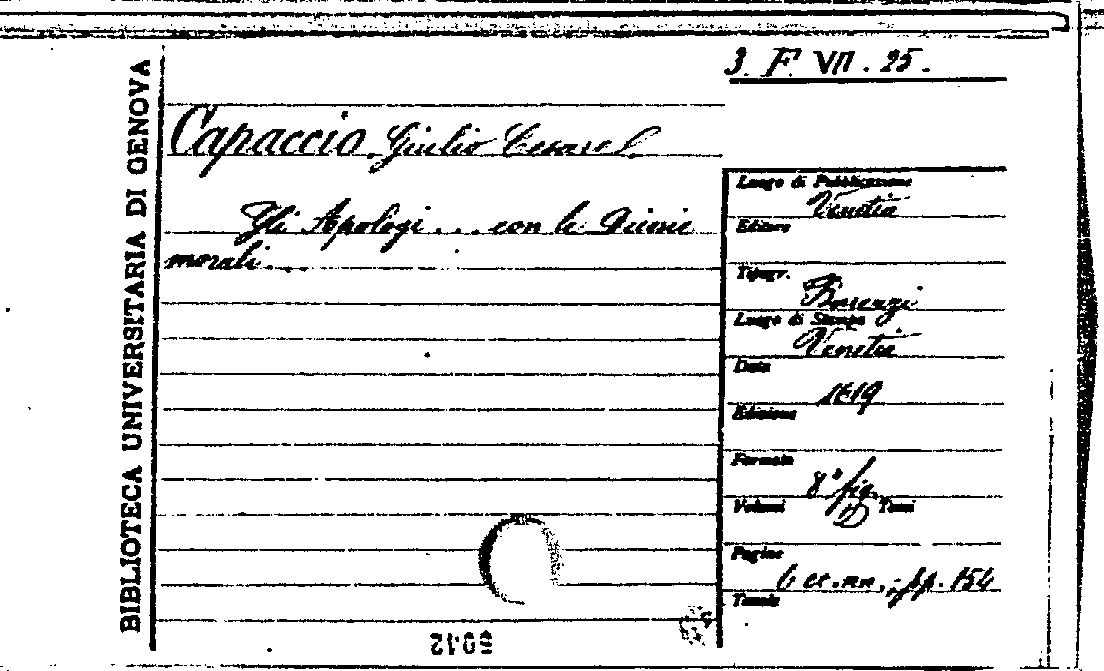 3. F. VII. 25.
BIBLIOTECA UNIVERSITARIA DI GENOVA
Capaccio Giulio Cesare
Gli Apologi... con le Dicerie
morali...
Luogo di Pubblicazione
Venetia
Editore
Tipogr.
Barezzi
Luogo di Stampa
Venetia
Data
1619
Edizione
Formato
8° fig.
Volumi Tomi
Pagine
cc. nn., pp. 154
Tavole